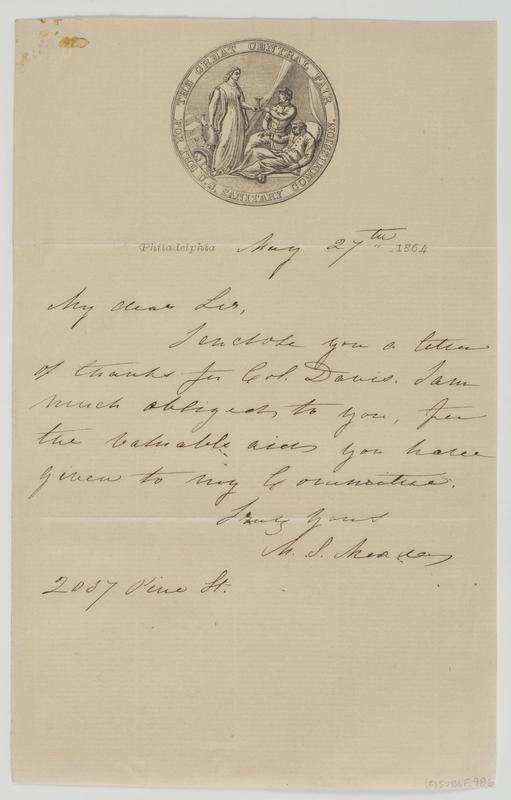 THE GREAT CENTRAL FAIR
FOR THE U.S. SANITARY COMMISSION.
Philadelphia May 27th 1864
My dear Sir,
I enclose you a letter
of thanks for Col. Davis. I am
much obliged to you, for
the valuable aid you have
given to my Committee.
Truly yours
M. S.
2037 Pine St.